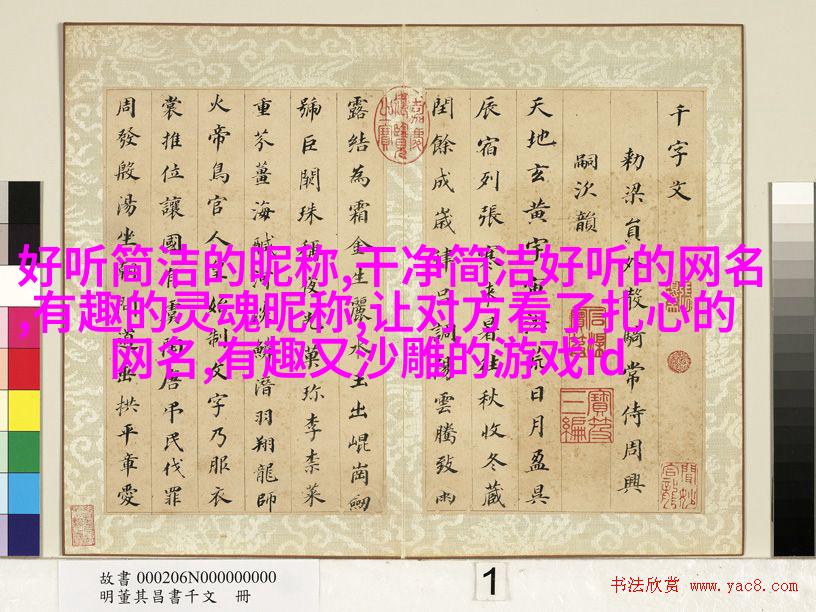 千字文
勑梁員外散騎常侍周興
嗣次韻
天地玄黃宇宙洪荒日月盈昃
辰宿列張寒來暑往秋收冬藏
閏餘成歲律呂調陽雲騰致雨
露結為霜金生麗水玉出崐崗劒
號巨闕珠稱夜光菓珍李柰菜
重芥薑海鹹河淡鱗潛羽翔龍師
火帝鳥官人皇始制文字乃服衣
裳推位讓國有虞陶唐弔民伐罪
周發殷湯坐朝問道垂拱平章愛
好听简洁的昵称,干净简洁好听的网名
,有趣的灵魂昵称,让对方看了扎心的
网名,有趣又沙雕的游戏id
故書 000206N000000000
明董其昌書千文 冊
1
书法欣赏 www.yac8.com